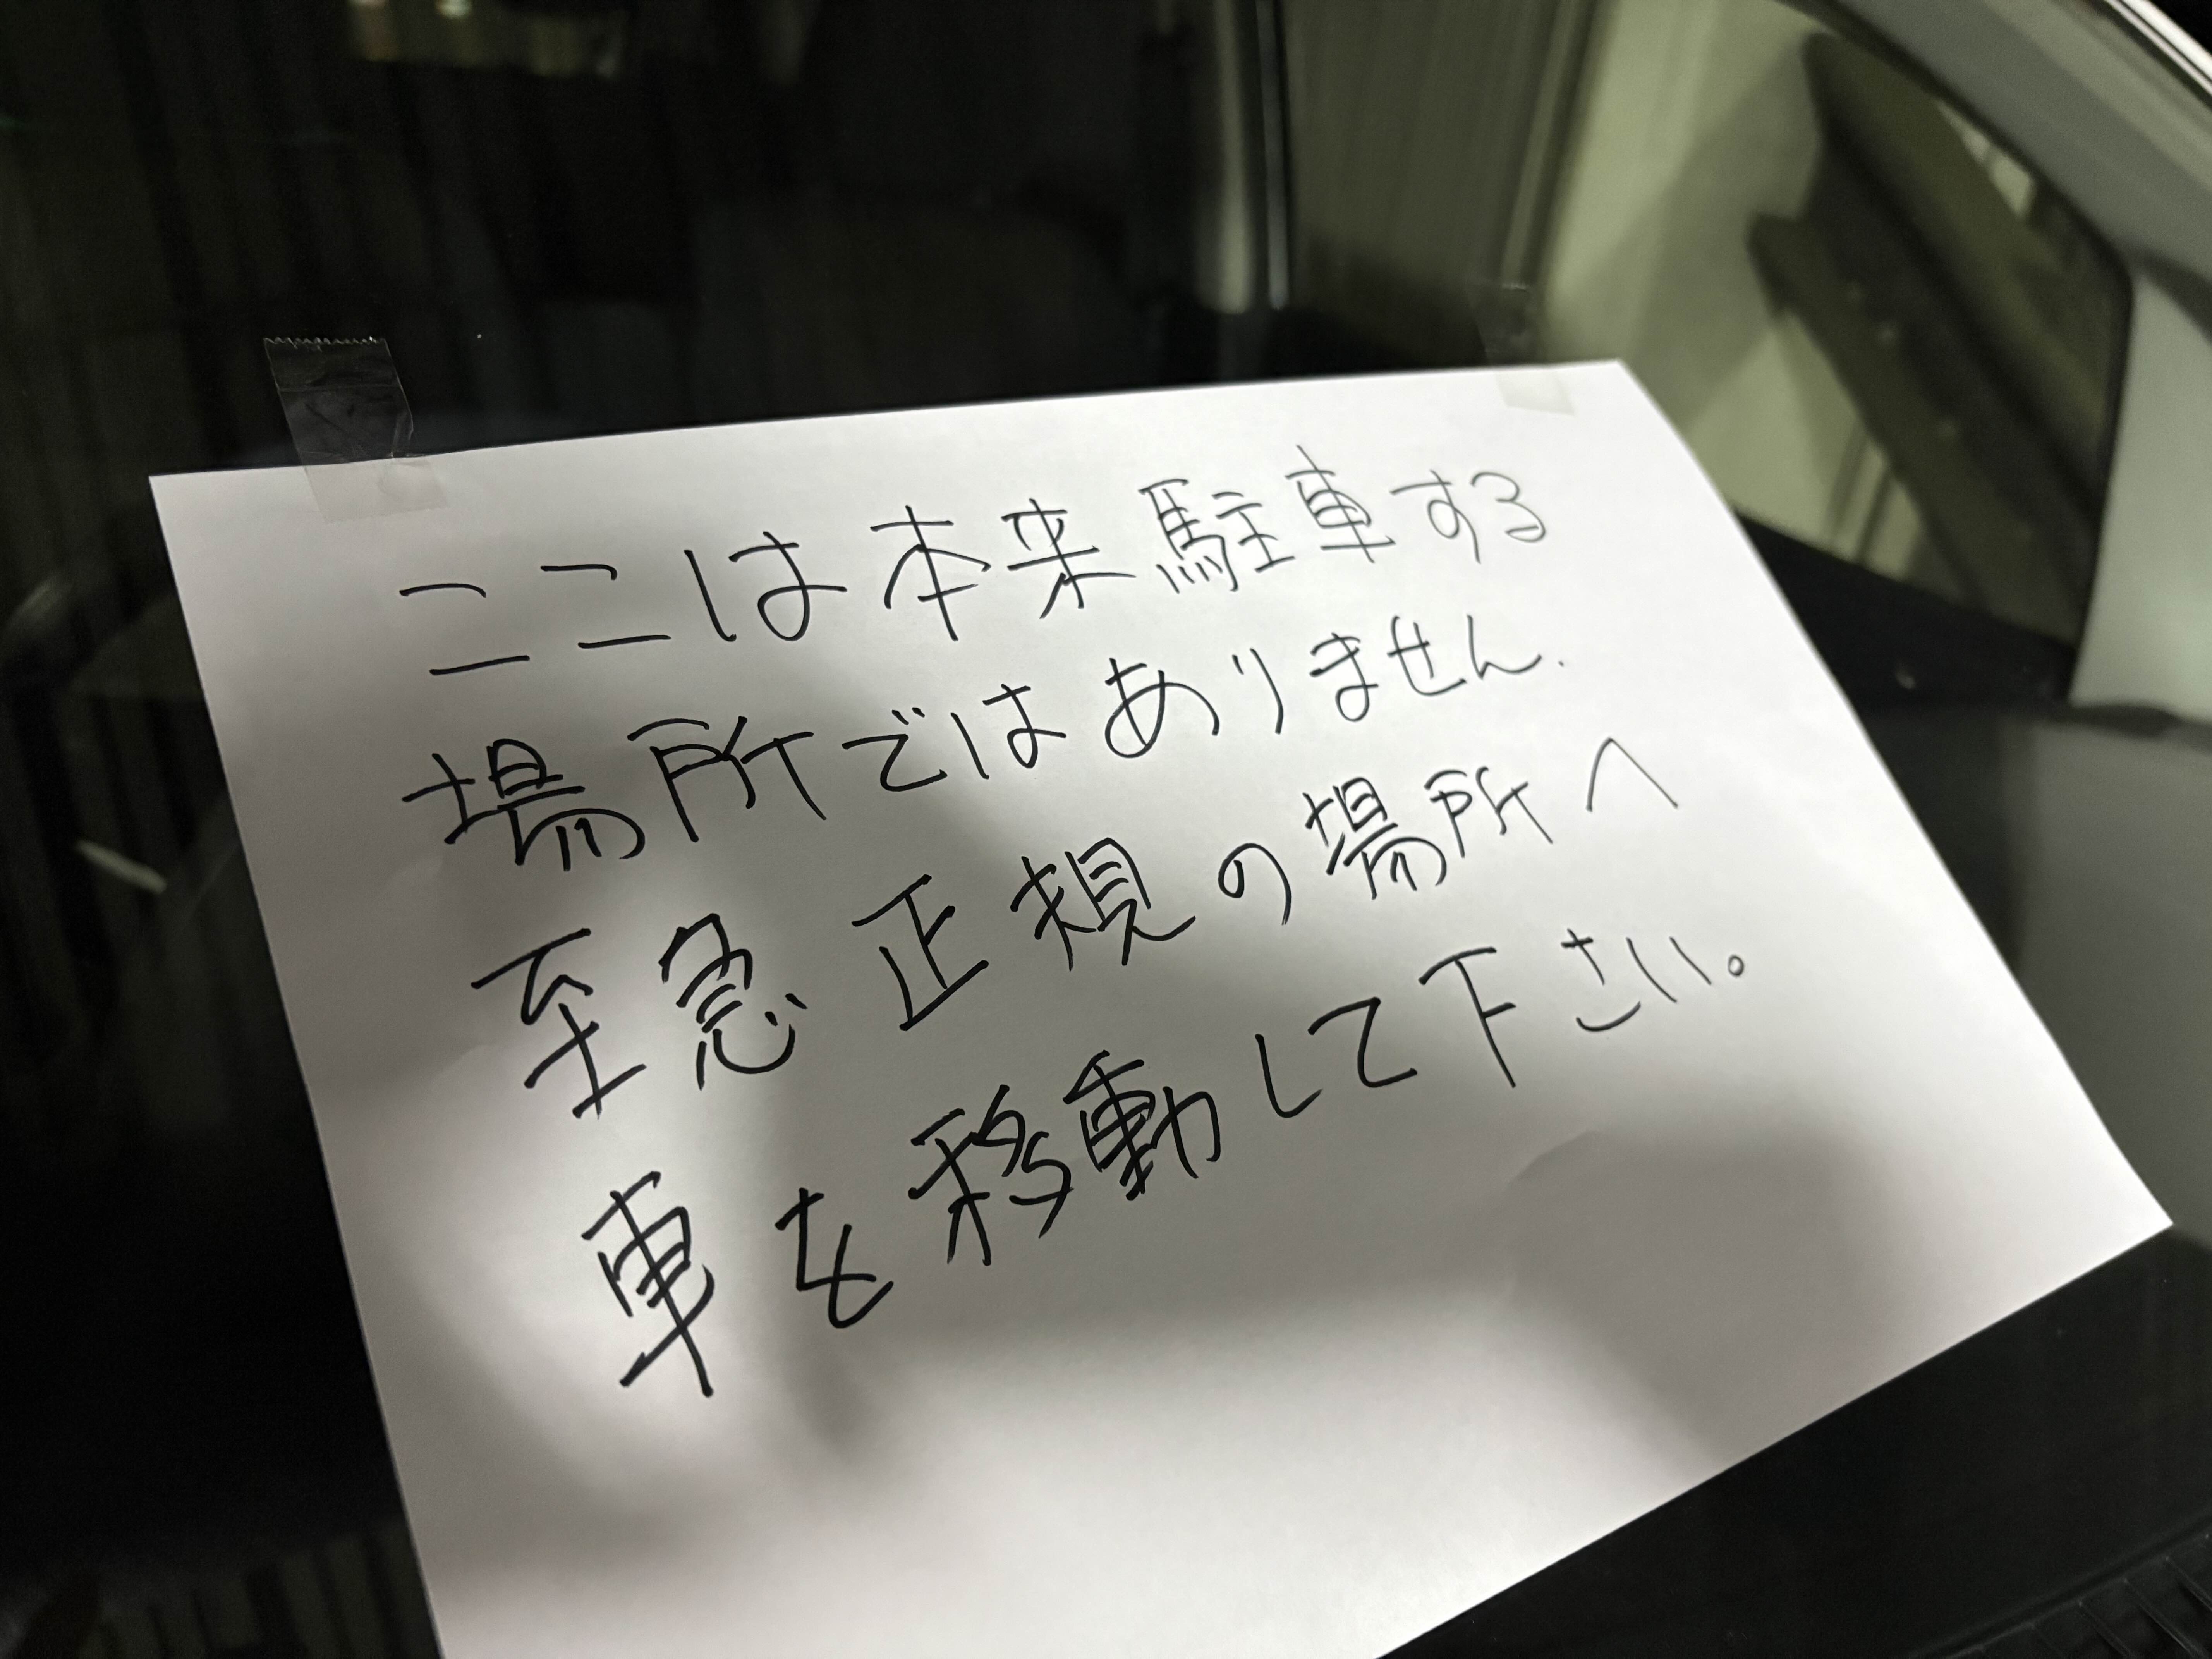 ここは本来駐車する
場所ではありません.
至急正規の場所へ
車を移動して下さい。